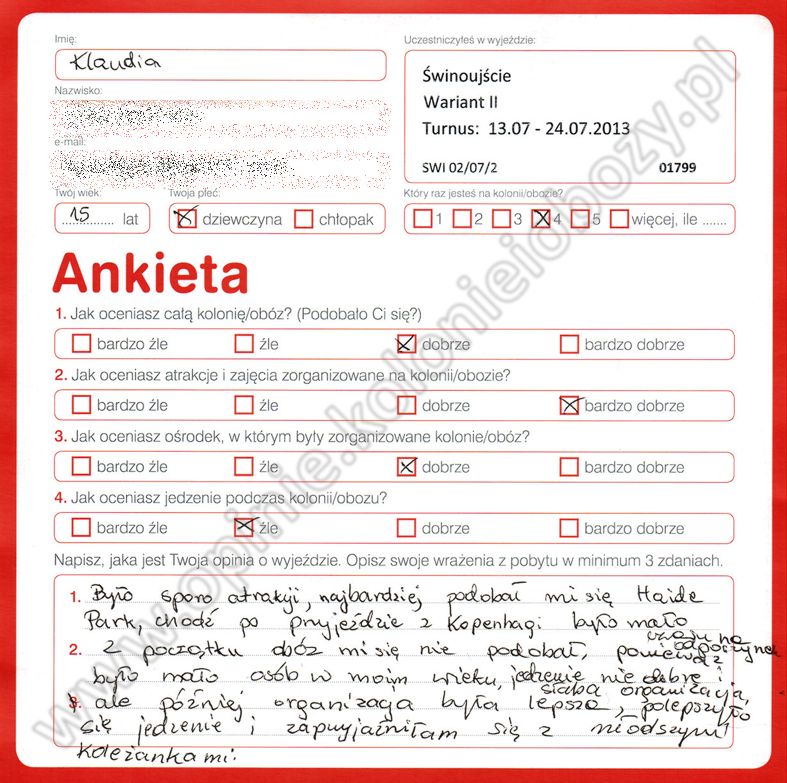 Imię:
Klaudia
Nazwisko:
e-mail:
Twój wiek:
15 lat
Twoja płeć:
dziewczyna chłopak
Uczestniczyłeś w wyjeździe:
Świnoujście
Wariant II
Turnus: 13.07 - 24.07.2013
SWI 02/07/2 01799
Który raz jesteś na kolonii/obozie?
1 2 3 4 5 więcej, ile .......
Ankieta
1. Jak oceniasz całą kolonię/obóz? (Podobało Ci się?)
bardzo źle źle dobrze bardzo dobrze
2. Jak oceniasz atrakcje i zajęcia zorganizowane na kolonii/obozie?
bardzo źle źle dobrze bardzo dobrze
3. Jak oceniasz ośrodek, w którym były zorganizowane kolonie/obóz?
bardzo źle źle dobrze bardzo dobrze
4. Jak oceniasz jedzenie podczas kolonii/obozu?
bardzo źle źle dobrze bardzo dobrze
Napisz, jaka jest Twoja opinia o wyjeździe. Opisz swoje wrażenia z pobytu w minimum 3 zdaniach.
1. Było sporo atrakcji, najbardziej podobał mi się Haide
Park, chodź po przyjeździe z Kopenhagi było mało
czasu na
odpoczynek
2. Z początku obóz mi się nie podobał, ponieważ
było mało osób w moim wieku, jedzenie nie dobre i
słaba organizacja,
3. ale później organizacja była lepsza, polepszyło
się jedzenie i zaprzyjaźniłam się z młodszymi
koleżankami:
www.opinie.kolonieiobozy.pl